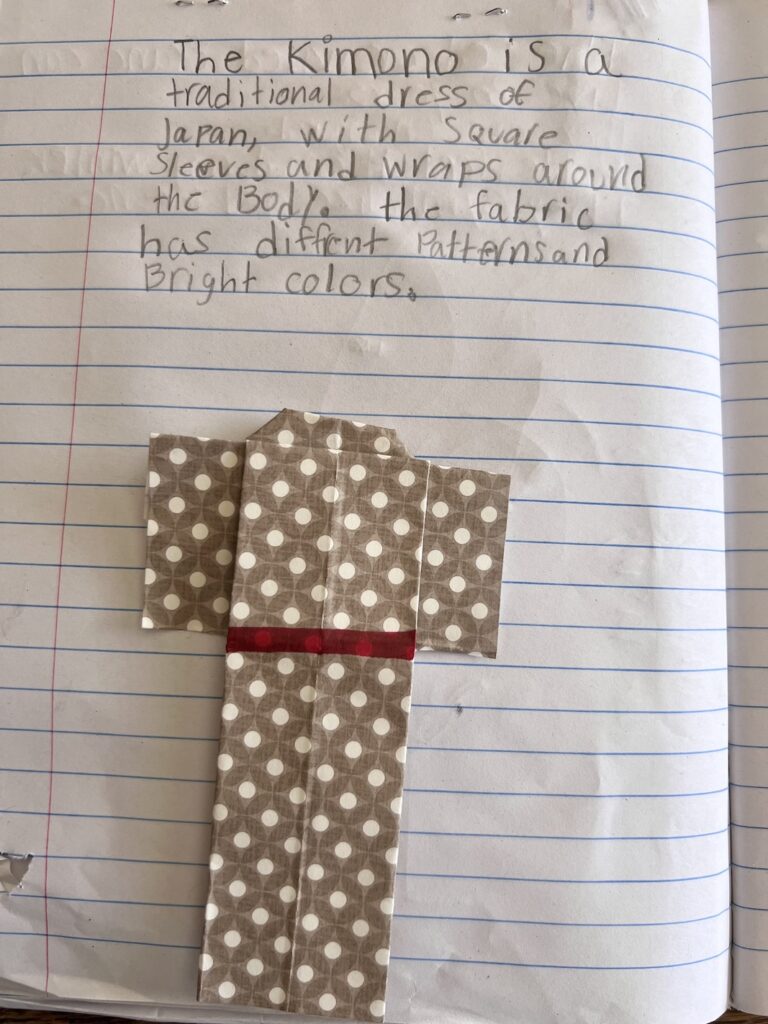 The Kimono is a
traditional dress of
Japan, with Square
Sleeves and wraps around
the Body. the fabric
has diffrent Patterns and
Bright colors.